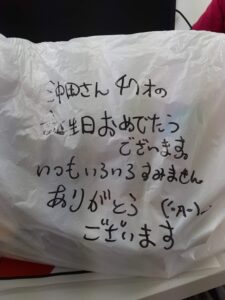 沖田さん 47才の
誕生日おめでとう
ございます。
いつもいろいろすみません
ありがとう
ございます